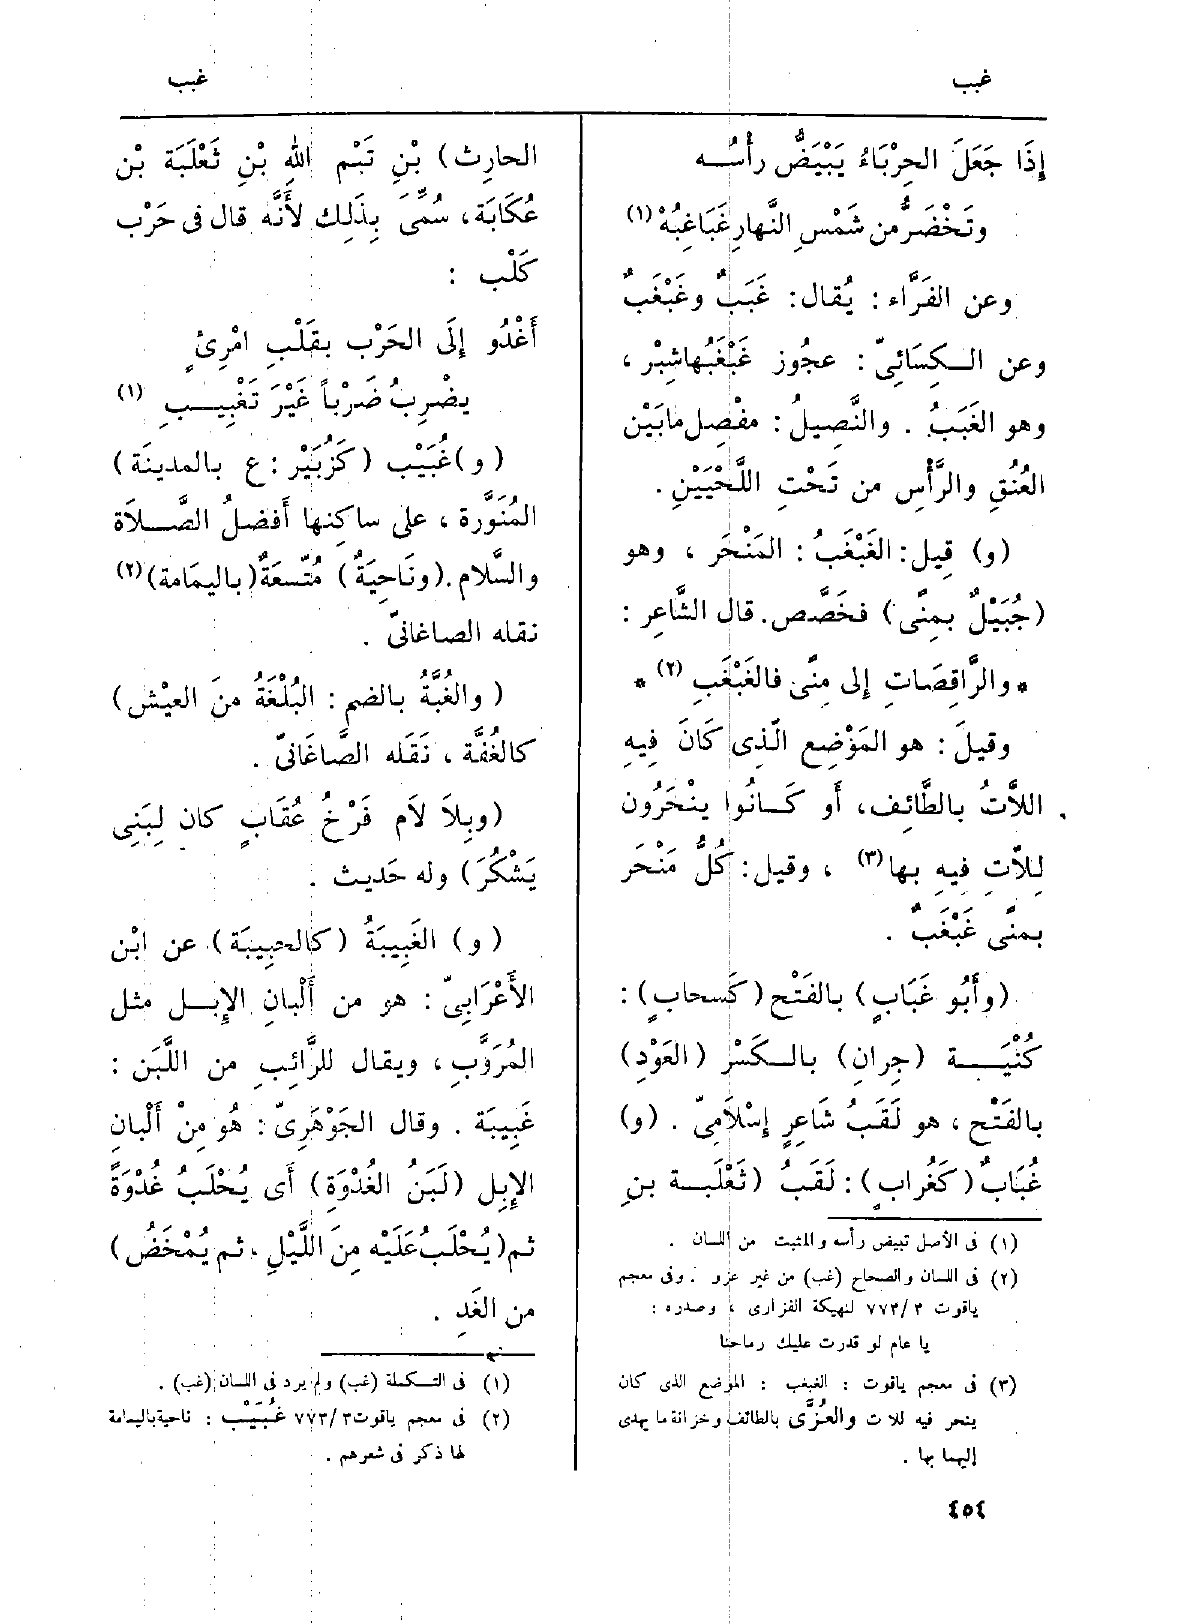 غبب
غبب
إِذَا جَعَلَ الحِرْبَاءُ يَبْيَضُّ رأْسُـه
وتَخْضَرُّ من شَمْسِ النَّهارِ غَبَاغِبُهْ (١)
وعن الفَرَّاء : يُقال : غَبَبٌ وغَبْغَبٌ
وعن الـكِسَائِىّ : عجُوز غَبْغَبُها شِبْر ،
وهو الغَبَبُ . والنَّصِيلُ : مفْصِل ما بَيْن
العُنُقِ والرَّأْسِ من تَحْتِ اللَّحْيَيْنِ .
(و) قِيل : الغَبْغَبُ : المَنْحَر ، وهو
(جُبَيْلٌ بمِنًى) فخَصَّص . قال الشَّاعِر :
* والرَّاقِصَاتِ إِلى مِنًى فالغَبْغَبِ (٢) *
وقيلَ : هو المَوْضِع الَّذِى كَانَ فِيهِ
اللاَّتُ بالطَّائِف، أَو كَـانُوا ينْحَرُون
لِلاَّتِ فِيهِ بها (٣) ، وقيل : كُلُّ مَنْحَر
بمِنًى غَبْغَبٌ .
(وأَبُو غَبَابٍ) بالفَتْح (كَسحابٍ) :
كُنْيَـــة (جِرانِ) بالـكَسْر (العَوْدِ)
بالفَتْح ، هو لَقَبُ شَاعِرٍ إِسْلاَمِىّ . (و)
غُبَابٌ (كَغُرابٍ) : لَقَبُ (ثَعْلَبـة بنِ
(١) فى الأصل تبيض رأسه والمثبت من اللسان .
(٢) فى اللسان والصحاح (غب) من غير عزو . وفى معجم
ياقوت ٣ / ٧٧٣ لنهيكة الفزارى ، وصدره :
يا عام لو قدرت عليك رماحنا
(٣) فى معجم ياقوت : الغبغب : الموضع الذى كان
ينحر فيه للات والعُزَّى بالطائف وخزانة ما يهدى
إليهما بها .
الحارِث) بْنِ تَيْمِ اللهِ بْنِ ثَعْلَبَة بْن
عُكَابَة، سُمِّىَ بِذَلِك لأَنَّه قال فى حَرْب
كَلْب :
أَغْدُو إِلَى الحَرْب بِقَلْبِ امْرِئٍ
يضْرِبُ ضَرْباً غَيْرَ تَغْبِيـبِ (١)
(و) غُبَيْب (كَزُبَيْر : ع بالمدينَة)
المُنَوَّرة ، على ساكنِها أَفضلُ الصَّـلاَة
والسَّلام . (ونَاحِيَةٌ) مُتّسعَةٌ (باليمَامة) (٢)
نقله الصاغانىّ .
( والغُبَّةُ بالضم : البُلْغَةُ منَ العيْش)
كالغُفَّة ، نَقَله الصَّاغَانىّ .
(وبِلاَ لاَم فَرْخُ عُقَابٍ كان لِبَنِى
يَشْكُرَ) وله حَديث .
( و) الغَبِيبَةُ (كالحبِيبَة) عن ابْن
الأَعْرَابِىّ : هو من أَلْبانِ الإِبـل مثل
المُرَوَّبِ ، ويقال للرَّائِبِ من اللَّبَن :
غَبِيبَة . وقال الجَوْهَرِىّ : هُو مِنْ أَلْبانِ
الإِبِل (لَبَنُ الغُدْوَةِ) أَى يُحْلَبُ غُدْوَةً
ثم (يُحْلَبُ عَلَيْه مِنَ اللَّيْلِ ، ثم يُمْخَضُ)
من الغَدِ .
(١) فى التـكملة (غب) ولم يرد فى اللسان (غب) .
(٢) فى معجم ياقوت ٣ / ٧٧٣ غُبَيْب : ناحية باليمامة
لها ذكر فى شعرهم .
٤٥٤